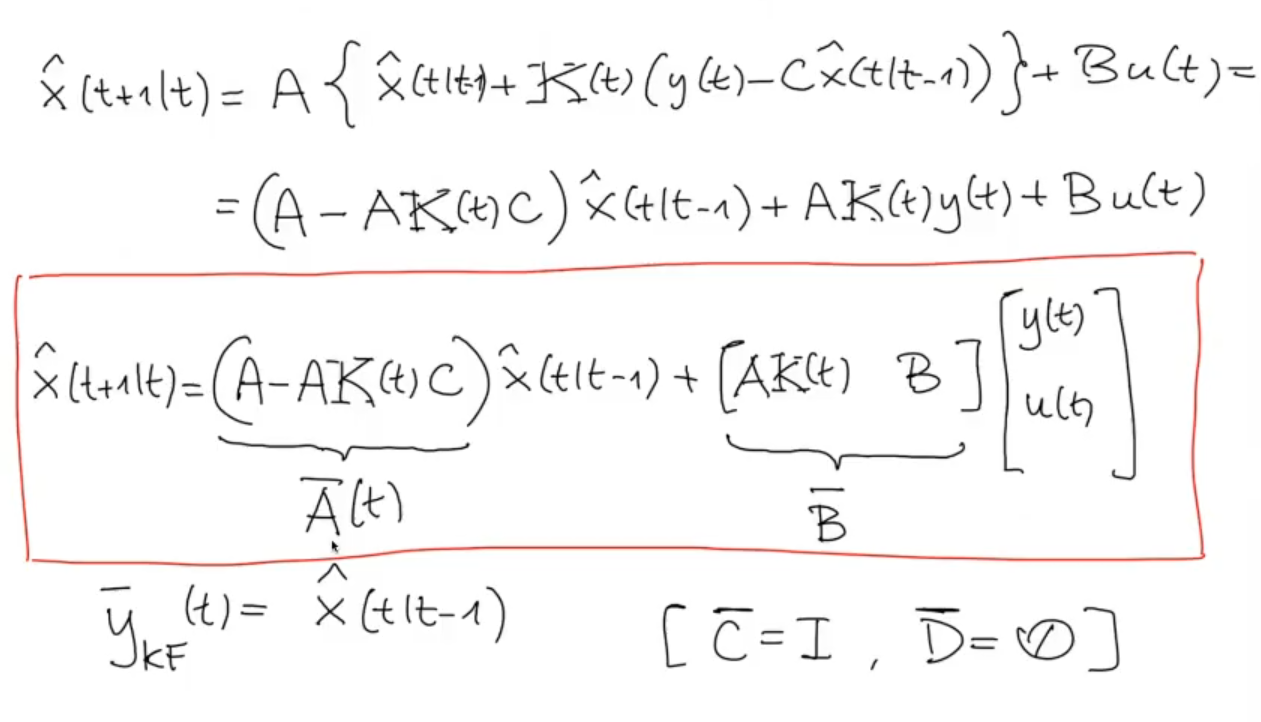 x̂(t+1|t) = A { x̂(t|t-1) + K(t) (y(t) - C x̂(t|t-1)) } + B u(t) =
= (A - A K(t) C) x̂(t|t-1) + A K(t) y(t) + B u(t)
x̂(t+1|t) = (A - A K(t) C) x̂(t|t-1) + [A K(t) B] [y(t) u(t)]
A̅(t) B̅
y̅_KF(t) = x̂(t|t-1) [C̅ = I, D̅ = 0]